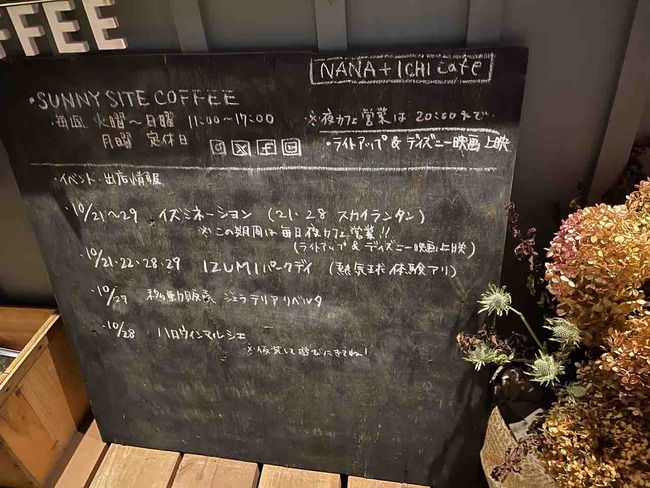 FFEE
NANA+ICHI cafe
・SUNNY SITE COFFEE
・毎週 火曜〜日曜 11:00〜17:00
月曜 定休日
※夜カフェ営業は20:00まで
・ライトアップ & ディズニー映画上映
・イベント・出店情報
・10/21〜29 イズミネーション (21・28 スカイランタン)
※この期間は毎日夜カフェ営業!!
(ライトアップ & ディズニー映画上映)
・10/21・22・28・29 IZUMIパークデイ (熱気球体験アリ)
・10/29 移動販売 ジェラテリアリベルタ
・10/28 ハロウィンマルシェ
※仮装して遊びにきてね!